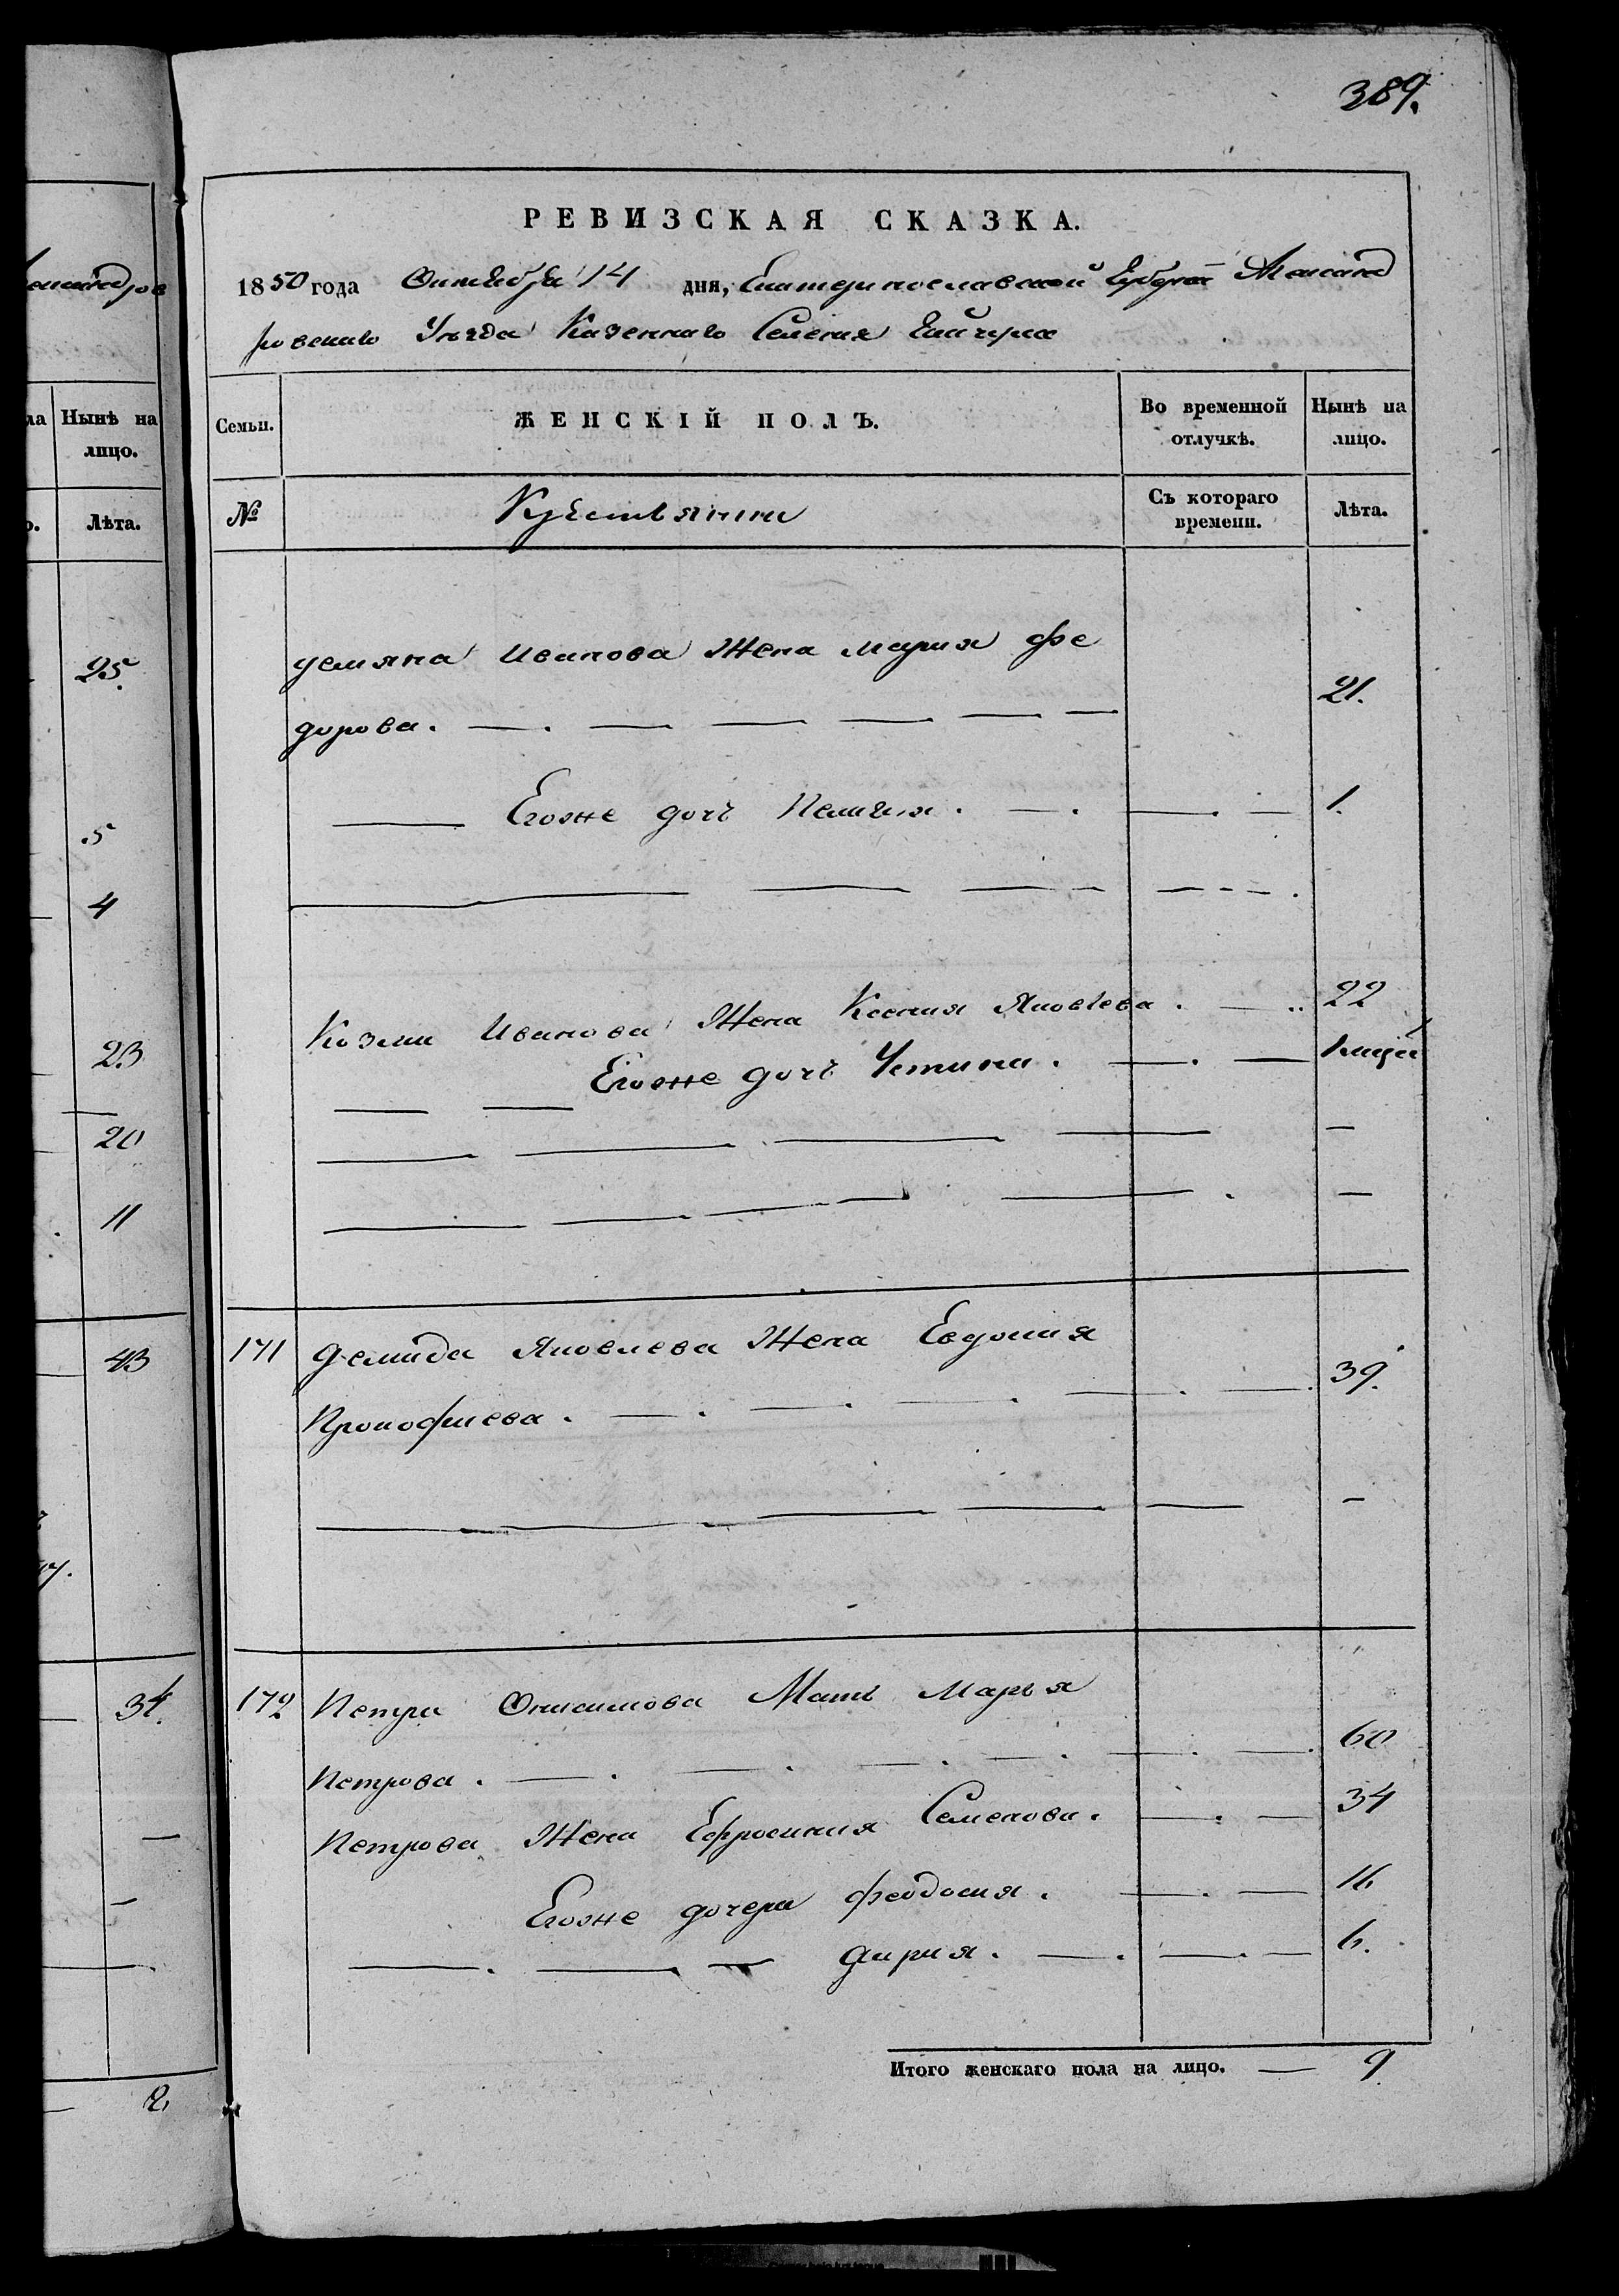 389.
РЕВИЗСКАЯ СКАЗКА.
1850 года Октября 14 дня, Екатеринославской Губерній Александ
ровскаго Уѣзда Казеннаго Селения
Семьи. ЖЕНСКІЙ ПОЛЪ. Во временной отлучкѣ. Нынѣ на лицо.
№ Крестьянки Съ котораго времени. Лѣта.
демяна Иванова Жена мария фе
дорова. — — — — — — 21.
— Егоже дочь Пелагия. — — — 1.
Козми Иванова Жена Ксения Яковлева. — 22
— — Егоже дочь Устина. — — 1 мцси
171 Демида Яковлева Жена Евдокия
Прокофиева. — — — — — 39.
172 Петра Онисимова Мать Марья
Петрова. — — — — — — 60
Петрова Жена Ефросиния Семенова. — — 34
Егоже дочери феодосия. — — 16
— — — дария. — — — 6.
Итого женскаго пола на лицо. — 9
ров
ла Нынѣ на лицо.
Лѣта.
25.
5
4
23
20
11
43
34.
2.